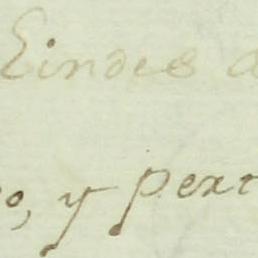 Eindes a
o, y pert